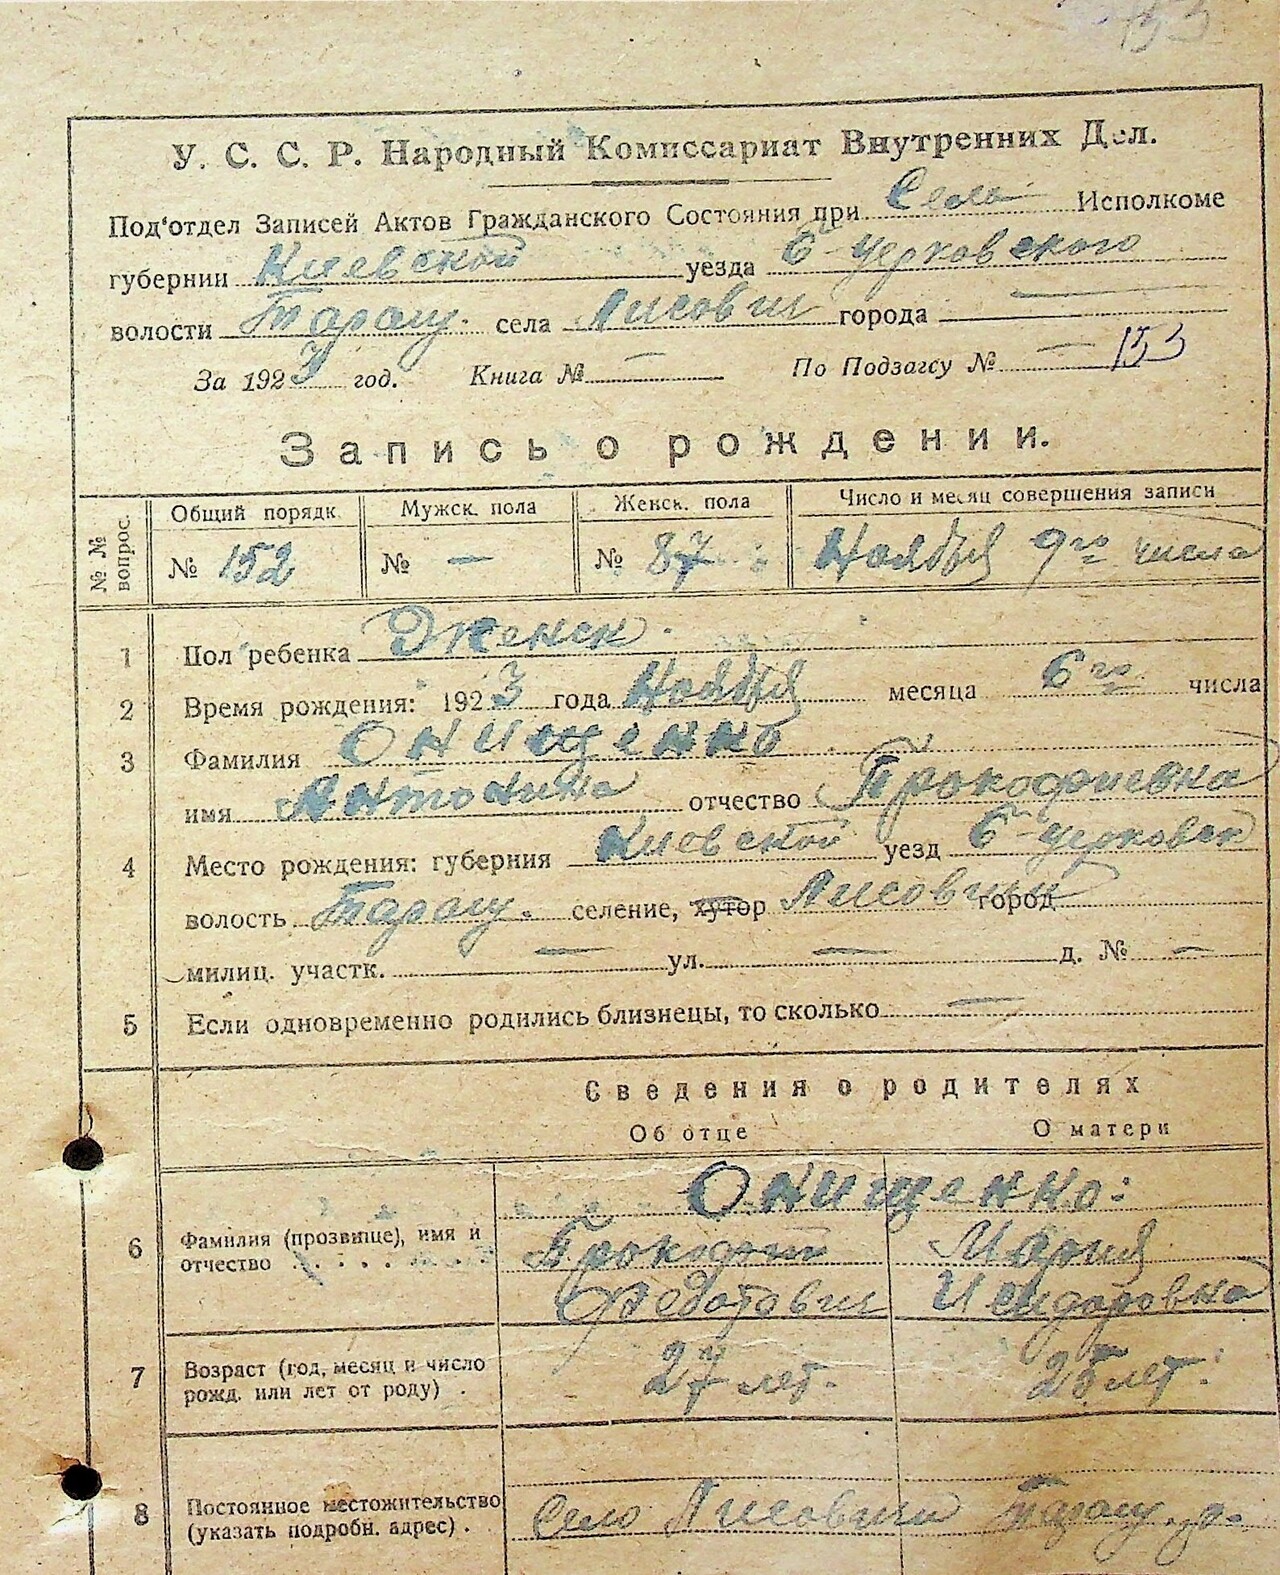 У. С. С. Р. Народный Комиссариат Внутренних Дел.
Под'отдел Записей Актов Гражданского Состояния при Села Исполкоме
губернии Киевской уезда Б-Церковского
волости Таращ. села Лисович города —
За 1923 год. Книга № — По Подзагсу № — 153
Запись о рождении.
№ № вопрос. Общий порядк. Мужск. пола Женск. пола Число и месяц совершения записи
№ 152 № — № 87 Ноября 9го числа
1 Пол ребенка Женск.
2 Время рождения: 1923 года Ноября месяца 6го числа
3 Фамилия Онищенко
имя Антонина отчество Прокофиевна
4 Место рождения: губерния Киевской уезд Б-Церковск
волость Таращ. селение, хутор Лисовичи город
милиц. участк. — ул. — д. № —
5 Если одновременно родились близнецы, то сколько —
Сведения о родителях
Об отце О матери
Онищенко:
6 Фамилия (прозвище), имя и Прокофий Мария
отчество . . . . . Федотович Исидоровна
7 Возраст (год, месяц и число 27 лет. 25 лет.
рожд. или лет от роду) .
8 Постоянное местожительство Село Лисовичи Таращ. р.
(указать подробн. адрес) .